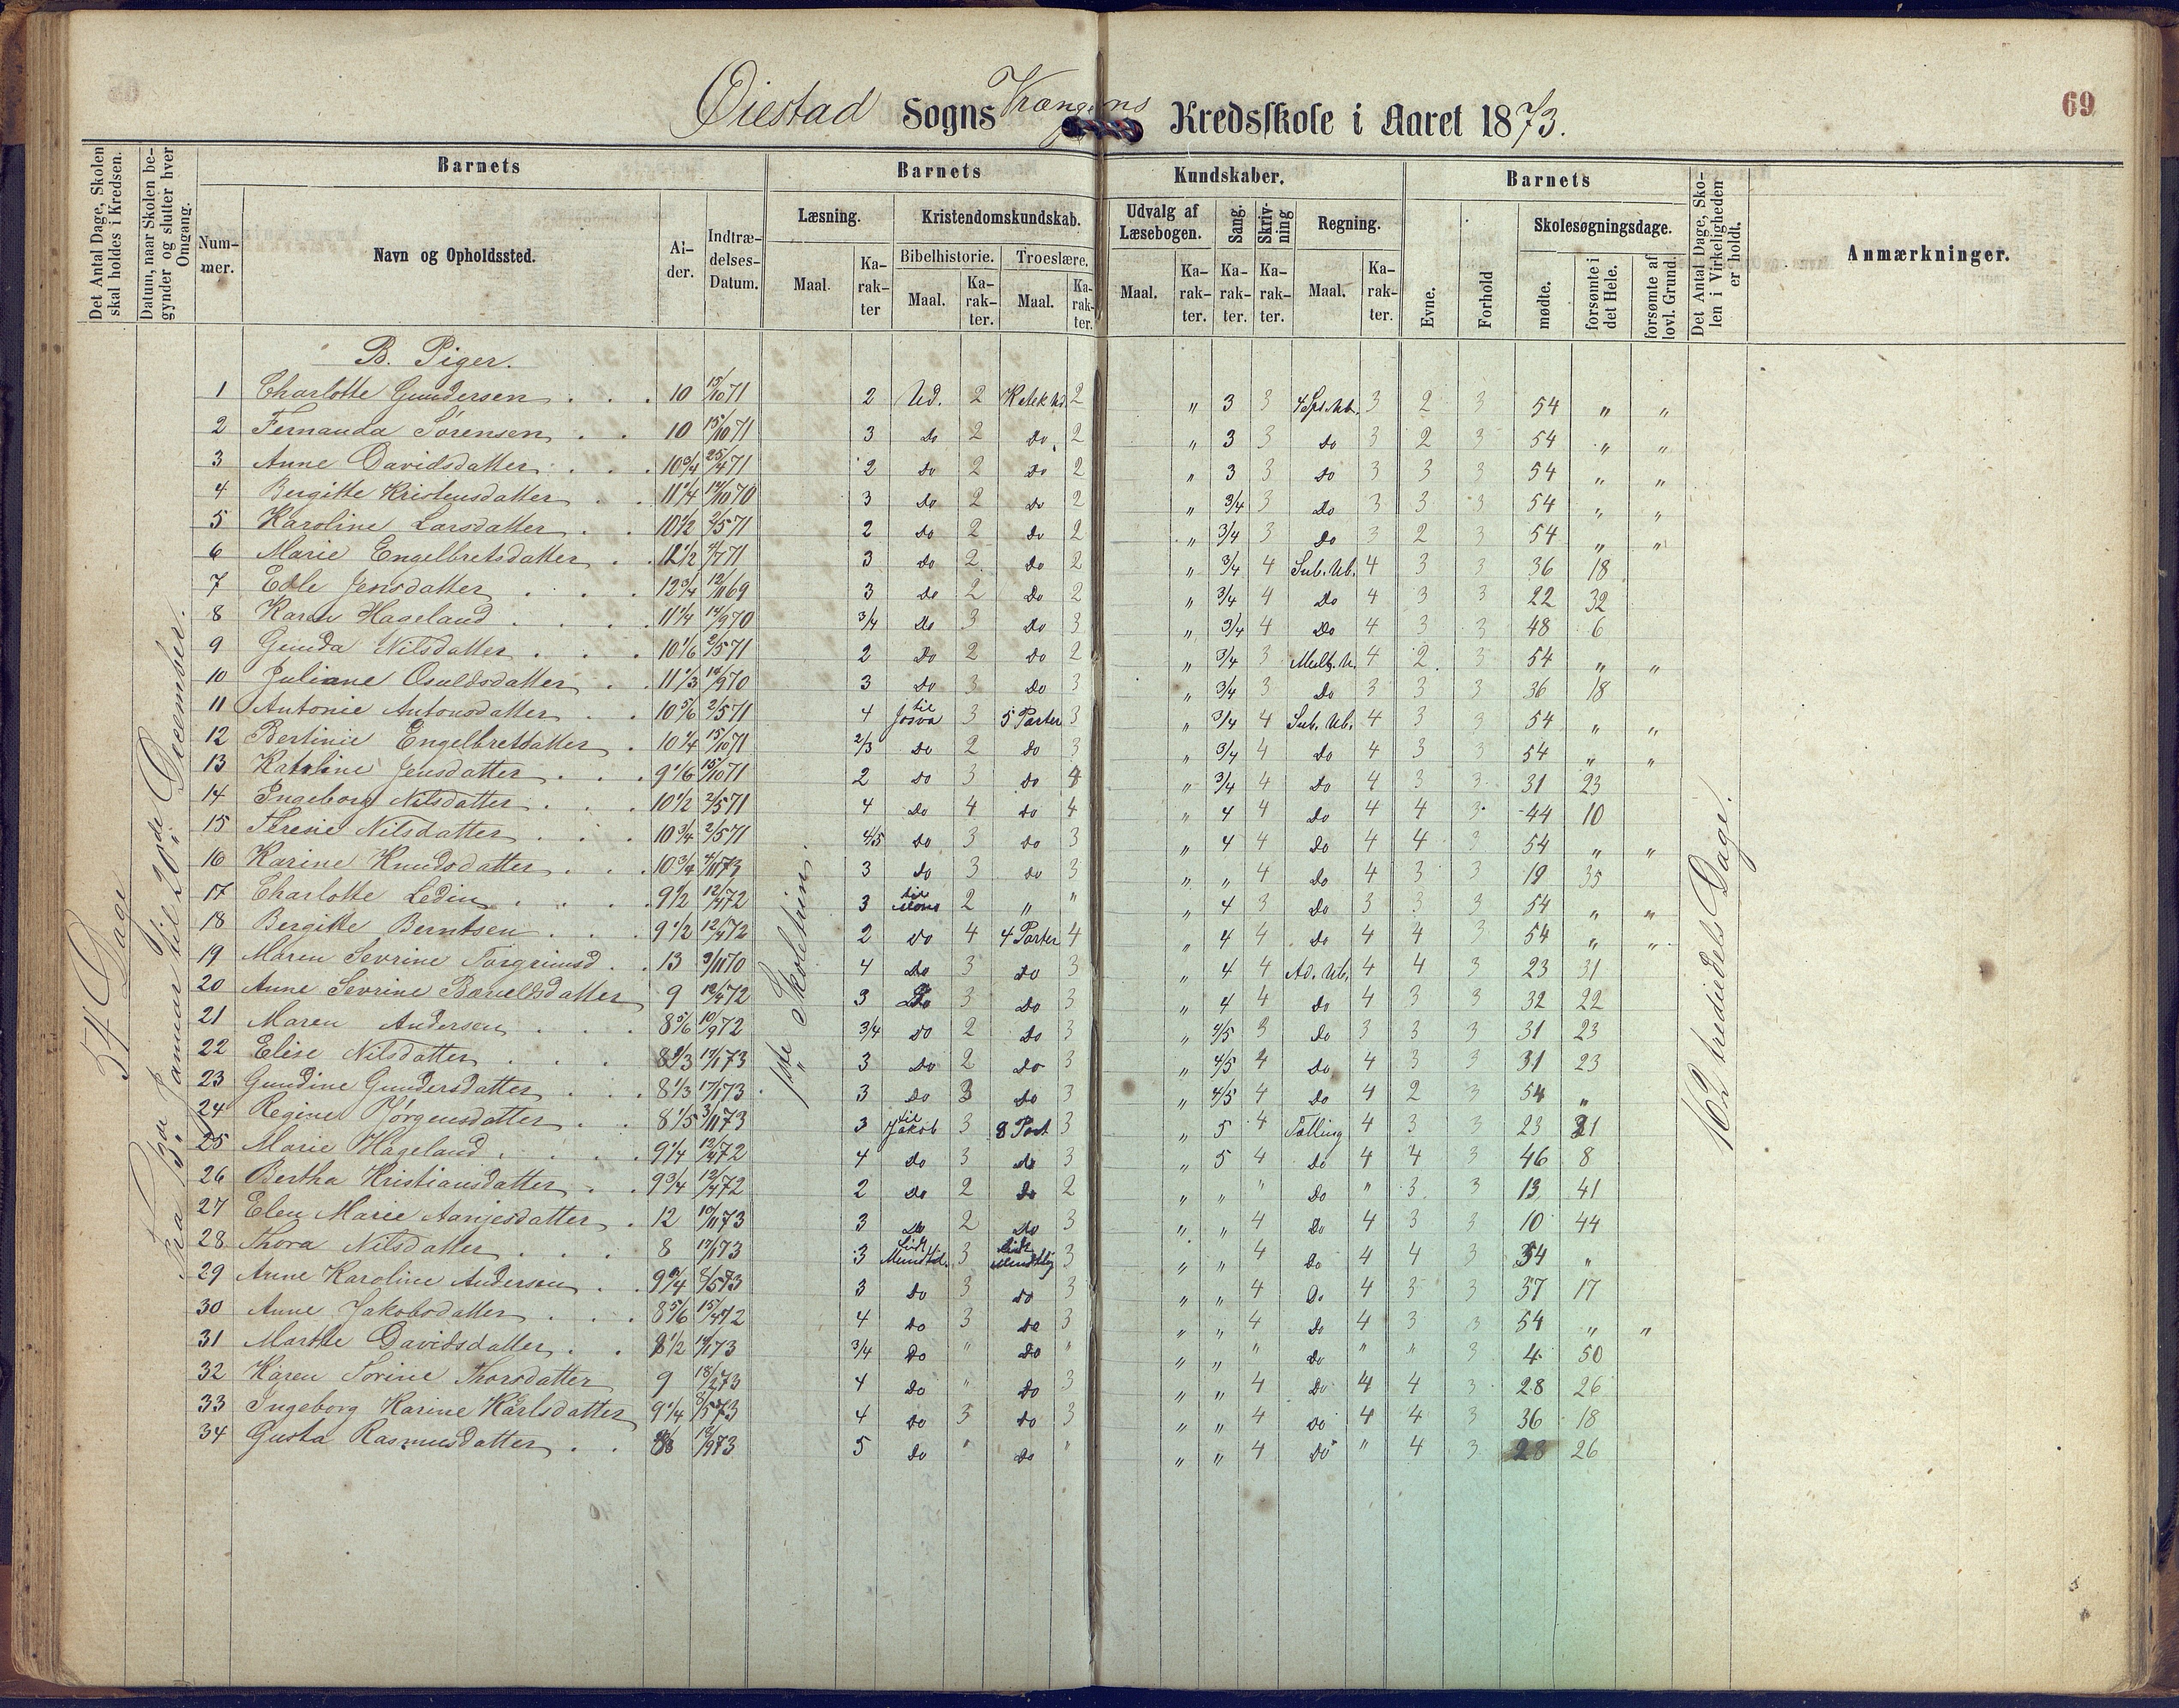 Øiestad Sogns Kredsskole i Aaret 1873.
69
Det Antal Dage, Skolen skal holdes i Kredsen.
Datum, naar Skolen begynder og slutter hver Omgang.
Barnets
Barnets
Kundskaber.
Barnets
Det Antal Dage, Skolen i Virkeligheden er holdt.
Anmærkninger.
Nummer.
Navn og Opholdssted.
Alder.
Indtrædelses-Datum.
Læsning.
Kristendomskundskab.
Bibelhistorie.
Troeslære.
Udvalg af Læsebogen.
Sang.
Skrivning
Regning.
Evne.
Forhold
Skolesøgningsdage.
mødte.
forsømte i det Hele.
forsømte af lovl. Grund.
Maal. Karakter Maal. Karakter. Maal. Karakter. Maal. Karakter. Karakter. Karakter. Maal. Karakter.
54 Dage
Januar til 20de December.
1ste Skoletrin.
162 trediedels Dage.
B. Piger.
1 Charlotte Gundersen 10 15/10 71 2 Ud. 2 2 " 3 3 3 2 3 54 " "
2 Fernanda Sørensen 10 15/10 71 3 Do 2 Do 2 " 3 3 Do 3 2 3 54 " "
3 Anne Davidsdatter 10 3/4 25/4 71 2 Do 2 Do 2 " 3 3 Do 3 3 3 54 " "
4 Bergitte Kristensdatter 11 1/4 70 3 Do 2 Do 2 " 3/4 3 Do 3 3 3 54 " "
5 Karoline Larsdatter 10 1/2 2/5 71 2 Do 2 Do 2 " 3/4 3 Do 3 2 3 54 " "
6 Marie Engelbretsdatter 12 1/2 71 3 Do 2 Do 2 " 3/4 4 Sub. Ub. 4 3 3 36 18
7 Edle Jensdatter 12 3/4 12/11 69 3 Do 2 Do 2 " 3/4 4 Do 4 3 3 22 32
8 Karen Hageland 11 1/4 14/9 70 3/4 Do 3 Do 3 " 3/4 4 Do 4 3 3 48 6
9 Gunda Nilsdatter 10 1/6 2/5 71 2 Do 2 Do 2 " 3/4 3 Mult. U. 4 2 3 54 " "
10 Juliane Osuldsdatter 11 1/3 70 3 Do 3 Do 3 " 3/4 3 Do 3 3 3 36 18
11 Antonie Antonsdatter 10 5/6 2/5 71 4 til Josva 3 5 Parter 3 " 3/4 4 Sub. Ub. 4 3 3 54 " "
12 Bertinie Engelbretsdatter 10 1/4 15/10 71 2/3 Do 2 Do 3 " 3/4 4 Do 4 3 3 54 " "
13 Jensdatter 9 1/6 15/10 71 2 Do 3 Do 4 " 3/4 4 Do 4 3 3 31 23
14 Ingeborg Nilsdatter 10 1/2 2/5 71 4 Do 4 Do 4 " 4 4 Do 4 4 3 44 10
15 Teresie Nilsdatter 10 3/4 2/5 71 4/5 Do 3 Do 3 " 4 4 Do 4 4 3 54 " "
16 Karine Knudsdatter 10 3/4 73 3 Do 3 Do 3 " " 4 Do 4 3 3 19 35
17 Charlotte Ledin 9 1/2 12/4 72 3 til 2 " " " 4 3 Do 3 3 3 54 " "
18 Bergitte Berntsen 9 1/2 12/4 72 2 Do 4 4 Parter 4 " 4 4 Do 4 4 3 54 " "
19 Maren Sevrine Torgrimsd. 13 70 4 Do 3 Do 3 " 4 4 Ad. Ub. 4 4 3 23 31
20 Anne Sevrine 9 12/4 72 3 Do 3 Do 3 " 4 4 Do 4 3 3 32 22
21 Maren Andersen 8 5/6 10/9 72 3/4 Do 2 Do 3 " 4/5 3 Do 3 3 3 31 23
22 Elise Nilsdatter 17/1 73 3 Do 2 Do 3 " 4/5 4 Do 4 3 3 31 23
23 Gundine Gundersdatter 8 1/3 17/1 73 3 Do 3 Do 3 " 4/5 4 Do 4 2 3 54 "
24 Regine Jørgensdatter 8 1/5 3/11 73 3 til Jakob 3 8 Part 3 " 5 4 Tælling 4 3 3 23 31
25 Marie Hageland 9 1/4 12/4 72 4 Do 3 Do 3 " 5 4 Do 4 4 3 46 8
26 Bertha Kristiansdatter 9 3/4 12/4 72 2 Do 2 Do 2 " " " Do " 3 3 13 41
27 Elen Marie Aanjesdatter 12 10/11 73 3 Do 2 Do 3 " " 4 Do 4 3 3 10 44
28 Thora Nilsdatter 8 17/1 73 3 Lidt 3 Lidt Mundtlig 3 " " 4 Do 4 4 3 54 "
29 Anne Karoline Andersen 73 3 Do 3 Do 3 " " 4 Do 4 3 3 37 17
30 Anne Jakobsdatter 8 5/6 15/4 72 4 Do 3 Do 3 " " 4 Do 4 3 3 54 " "
31 Marthe Davidsdatter 8 1/2 73 3/4 Do " Do " " " " Do " " 3 4 50
32 Karen Sorine Thorsdatter 9 18/2 73 4 Do " Do 3 " " 4 Do 4 4 3 28 26
33 Ingeborg Karine Karlsdatter 9 1/4 73 4 Do 3 Do 3 " " 4 Do 4 4 3 36 18
34 Gusta Rasmusdatter 73 5 Do " Do " " " 4 Do " 4 3 28 26